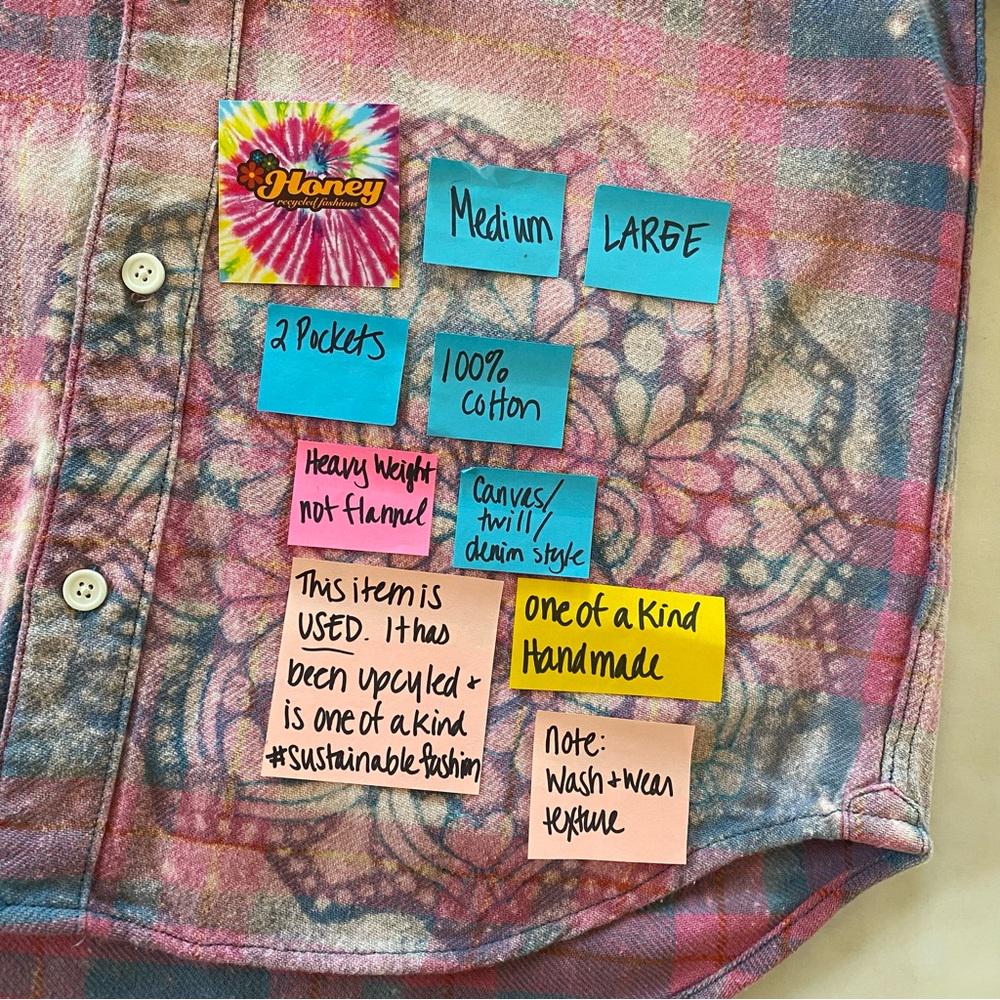 Honey
recycled fashions
Medium
LARGE
2 Pockets
100%
cotton
Heavy Weight
not flannel
Canvas/
twill/
denim style
This item is
USED. It has
been upcyled +
is one of a kind
#sustainable fashion
one of a Kind
Handmade
note:
Wash + Wear
texture